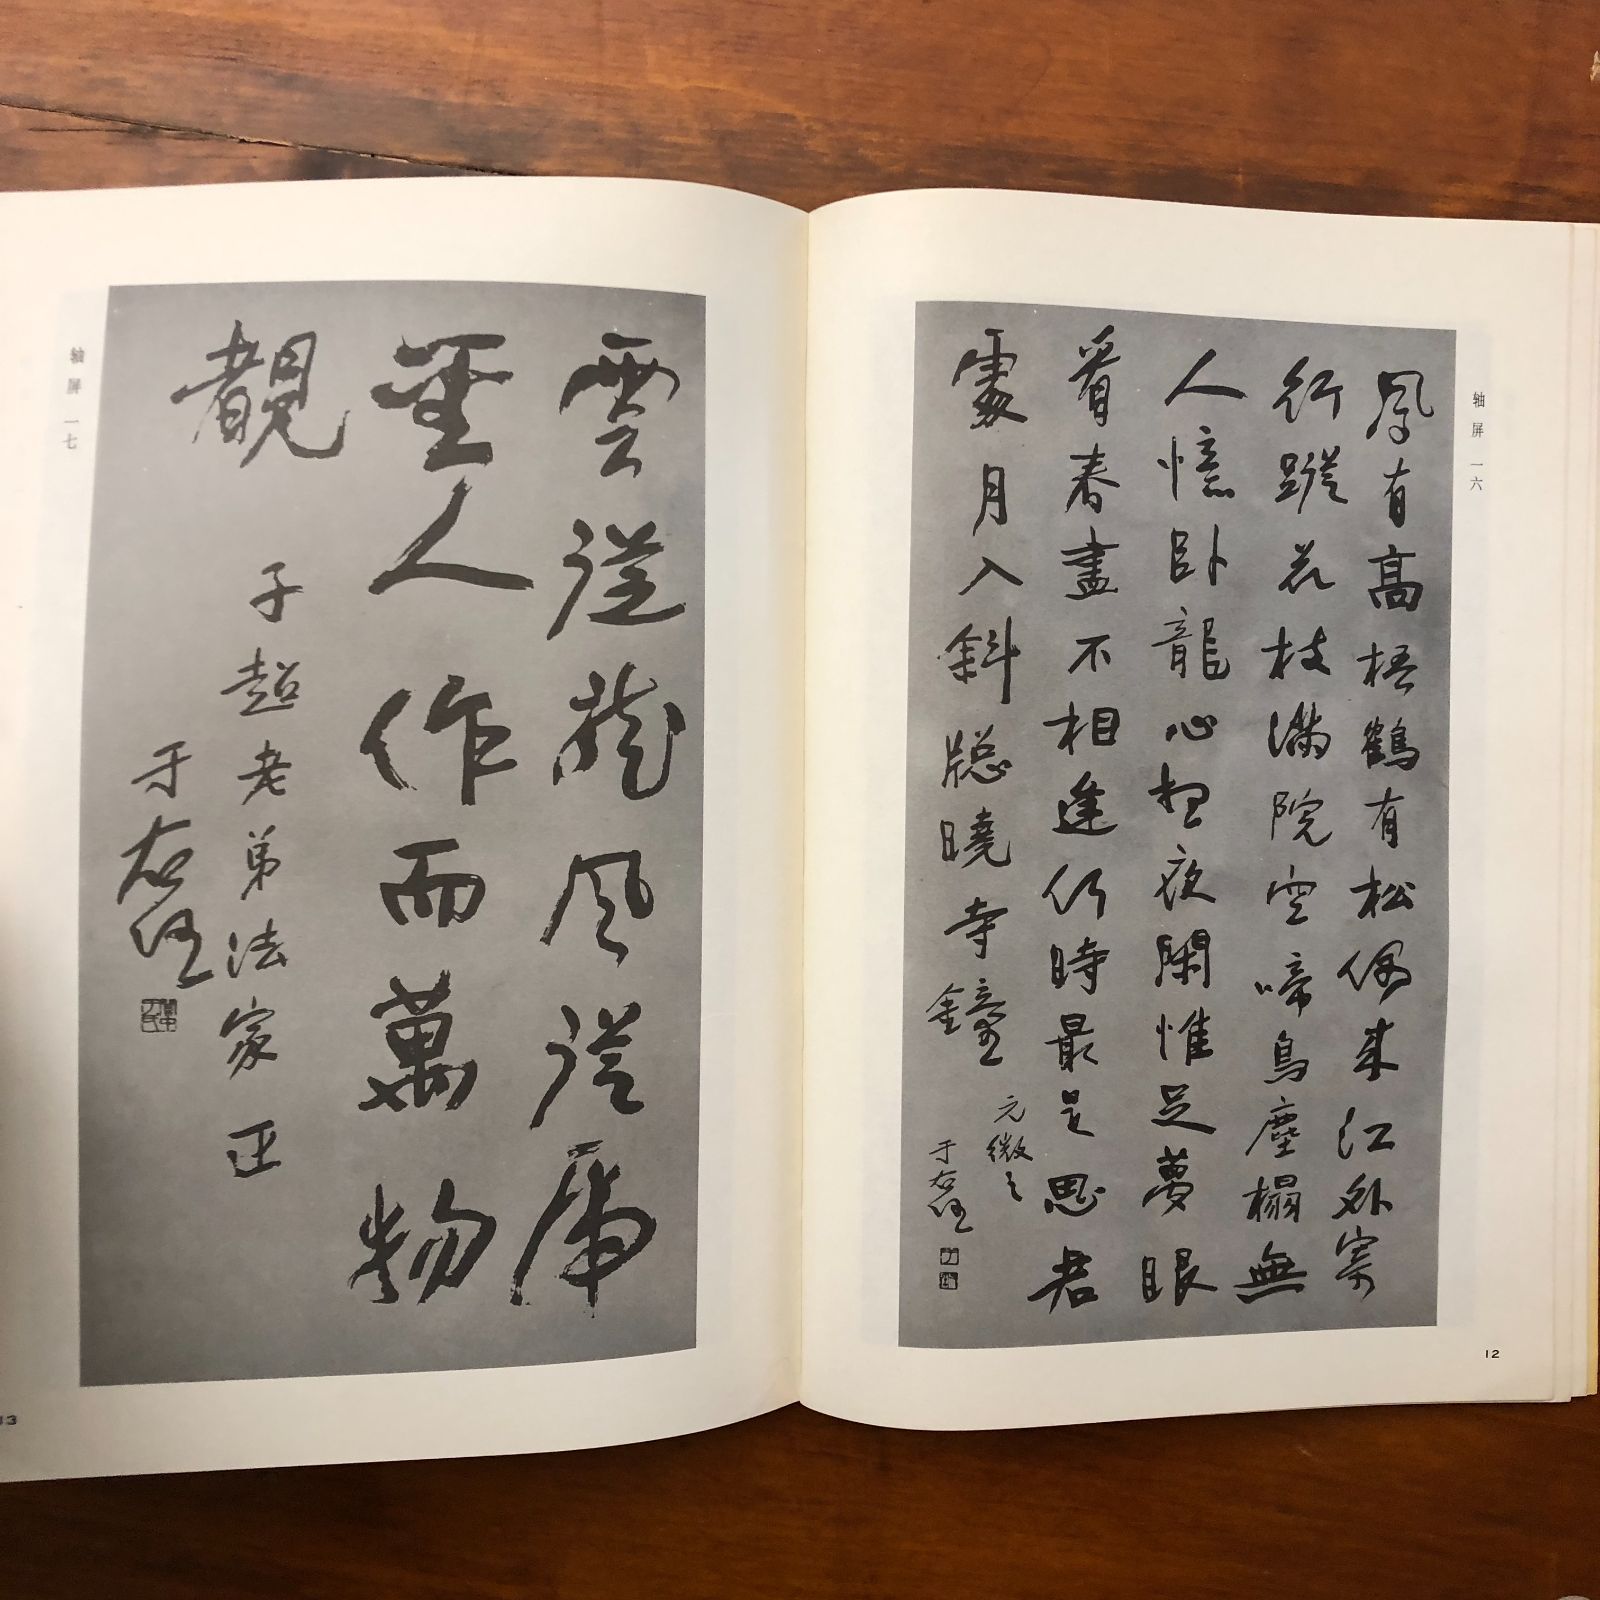 轴屏 一六
鳳有高梧鶴有松偶來江外寄
行蹤花枝滿院空啼鳥塵榻無
人憶臥龍心想夜閑惟足夢眼
看春盡不相逢何時最是思君
處月入斜牕曉寺鐘
元微之
于右任
12
雲從龍風從虎
聖人作而萬物
覩
子超老弟法家正
于右任
轴屏 一七
13